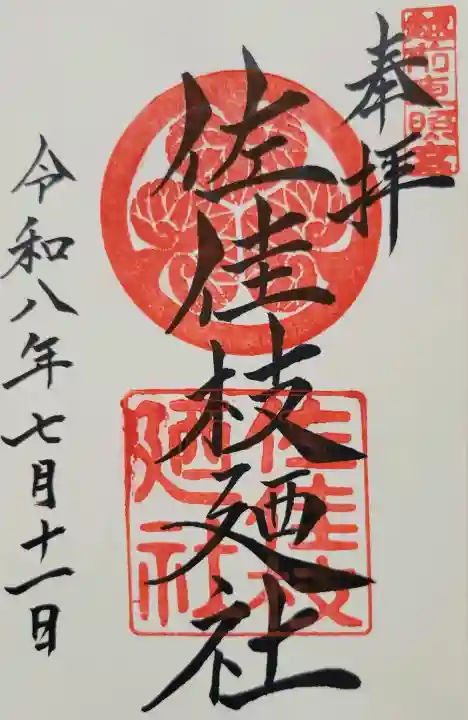 越前東照宮
奉拝
佐佳枝廼社
佐佳枝
廼社
令和八年七月十一日